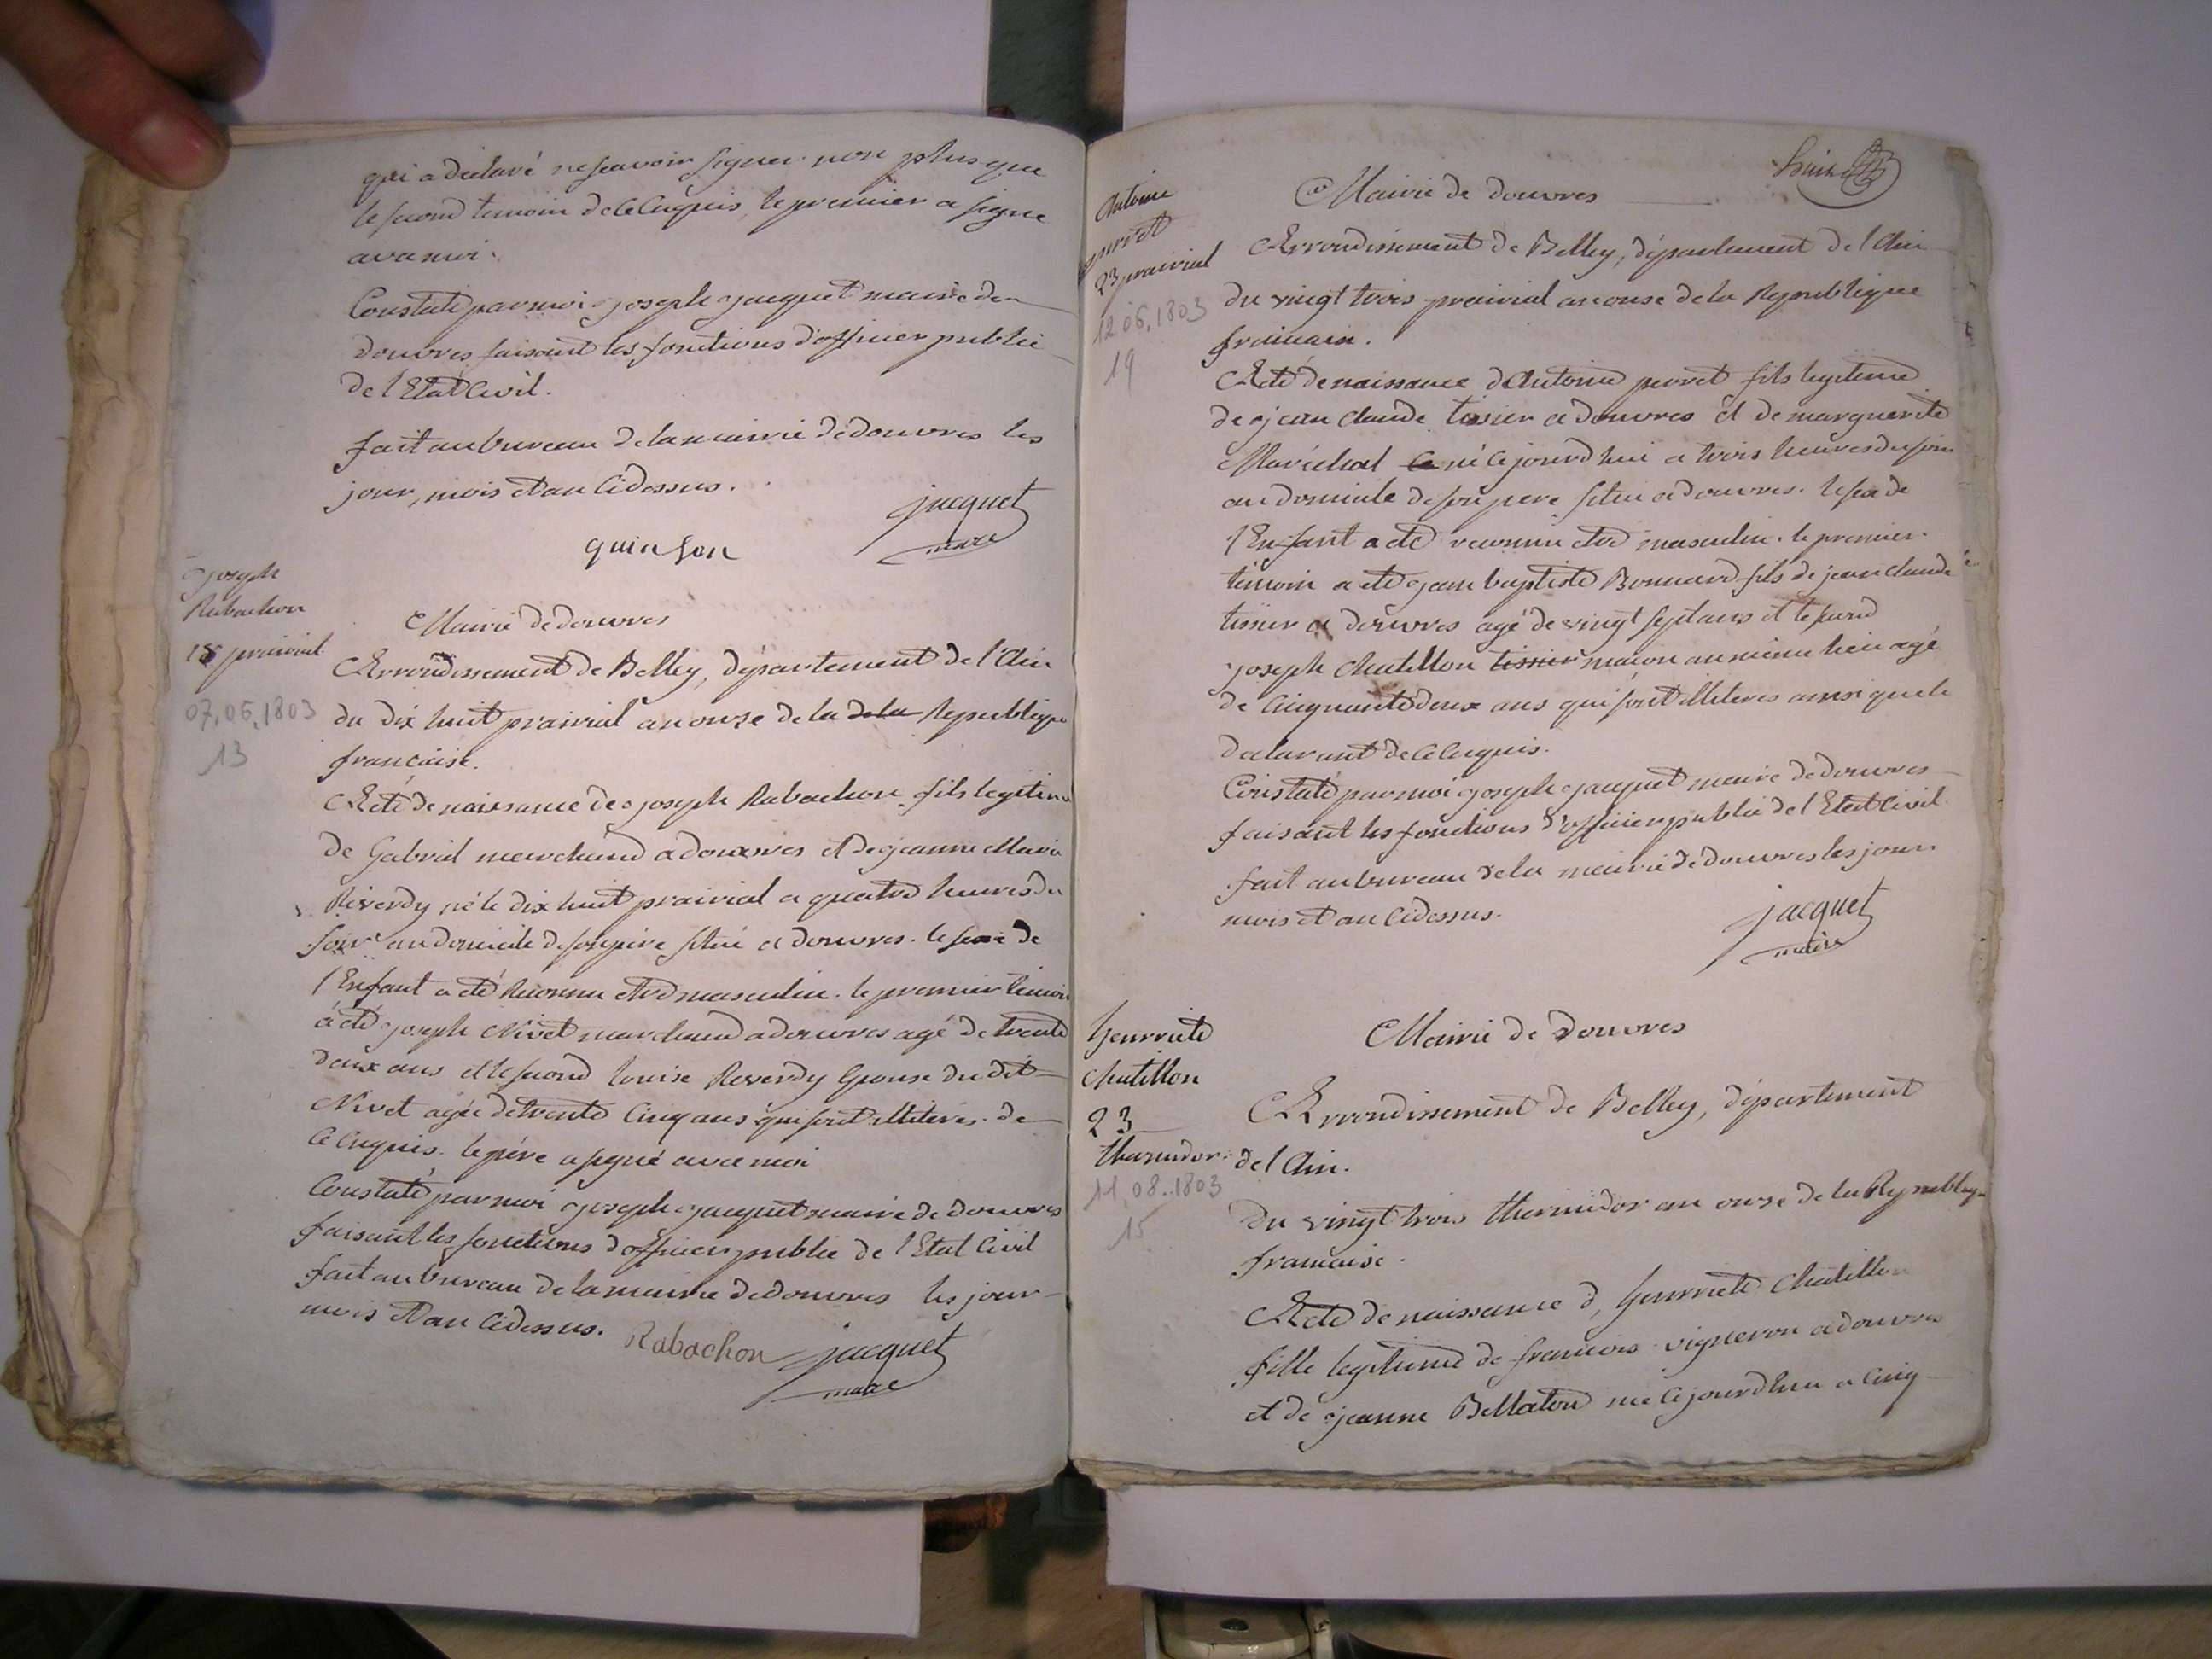 qui a declaré ne scavoir signer non plus que
le second temoin de ce enquis, le premier a signe
avec moi.
Constaté par moi joseph jacquet maire de
douvres faisant les fonctions d'officier public
de l'Etat Civil.
fait au bureau de la mairie de douvres les
jour, mois et an cidessus.
jacquet
maire
quinson
joseph
Rabachon
18 prairial
07.06.1803
13
Mairie de douvres
Arrondissement de Belley, département de l'Ain
du dix huit prairial an onze de la de la Republique
francaise.
Acte de naissance de joseph Rabachon fils legitime
de Gabriel marchand a douvres et de jeanne Marie
Reverdy né le dix huit prairial a quatre heures du
soir au domicile de son père situé a douvres. le sexe de
l'Enfant a été reconnu etre masculin. le premier temoin
a été joseph Nivet marchand a douvres agé de trente
deux ans et le second louise Reverdy Epouse du dit
Nivet agée de trente cinq ans qui sont illiterés de
ce enquis. le père a signé avec moi
Constaté par moi joseph jacquet maire de douvres
faisant les fonctions d'officier public de l'Etat Civil
fait au bureau de la mairie de douvres les jour
mois et an cidessus.
Rabachon jacquet
maire
Antoine
perret
23 prairial
12.06.1803
14
Mairie de douvres
Arrondissement de Belley, département de l'Ain
du vingt trois prairial an onze de la Republique
francaise.
Acte de naissance d'Antoine perret fils legitime
de jean claude tissier a douvres et de marguerite
Maréchal né ce jourd'hui a trois heures du soir
au domicile de son pere situé a douvres. le sexe de
l'Enfant a été reconnu etre masculin. le premier
temoin a été jean baptiste Bonnard fils de jean claude
tissier a douvres agé de vingt sept ans et le second
joseph chatillon tissier maçon au même lieu agé
de cinquante deux ans qui sont illiteres ainsi que le
declarant de ce enquis.
Constaté par moi joseph jacquet maire de douvres
faisant les fonctions d'officier public de l'Etat Civil
fait au bureau de la mairie de douvres les jour
mois et an cidessus.
jacquet
maire
henriete
chatillon
23
thermidor
11.08.1803
15
Mairie de douvres
Arrondissement de Belley, département
de l'Ain.
du vingt trois thermidor an onze de la Republique
francaise.
Acte de naissance d'henriete chatillon
fille legitime de francois vigneron a douvres
et de jeanne Bellaton née ce jourd'hui a cinq